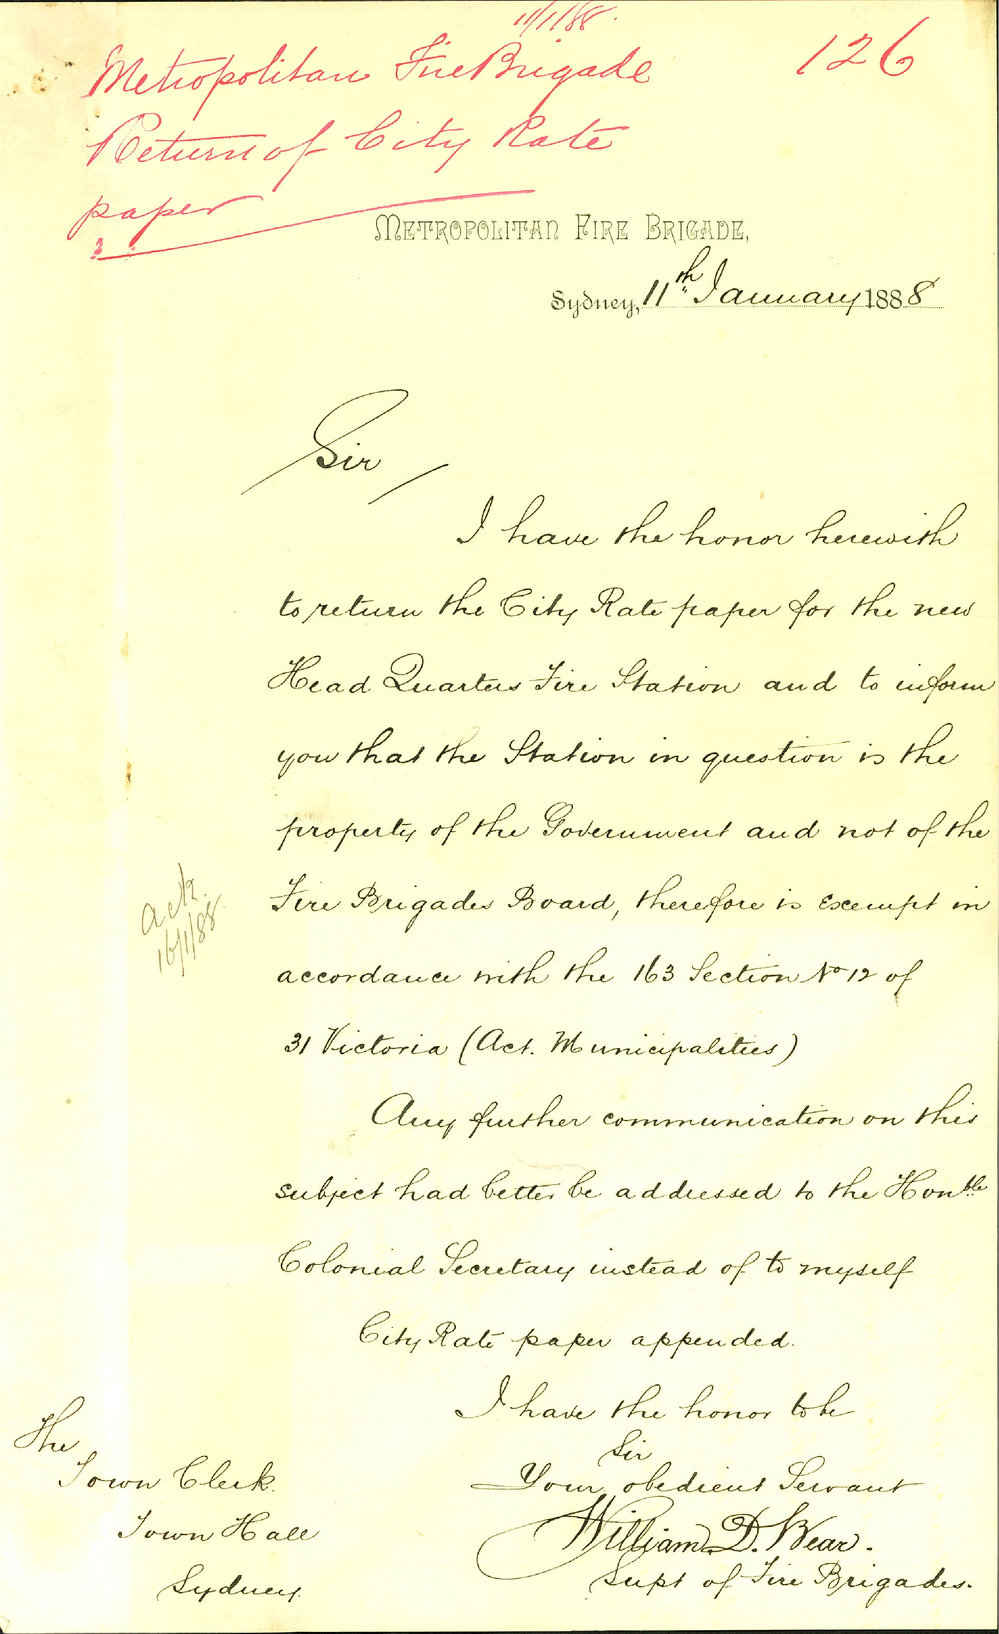 11/1/88.
126
Metropolitan Fire Brigade
Return of City Rate
paper
METROPOLITAN FIRE BRIGADE,
Sydney, 11th January 1888
Sir
I have the honor herewith
to return the City Rate paper for the new
Head Quarters Fire Station and to inform
you that the Station in question is the
property of the Government and not of the
Fire Brigades Board, therefore is exempt in
accordance with the 163 Section No 12 of
31 Victoria (Act. Municipalities)
Any further communication on this
subject had better be addressed to the Honble
Colonial Secretary instead of to myself
City Rate paper appended.
Ack.
16/1/88.
I have the honor to be
Sir
Your obedient Servant
William D. Bear.
Supt of Fire Brigades.
The
Town Clerk.
Town Hall
Sydney.